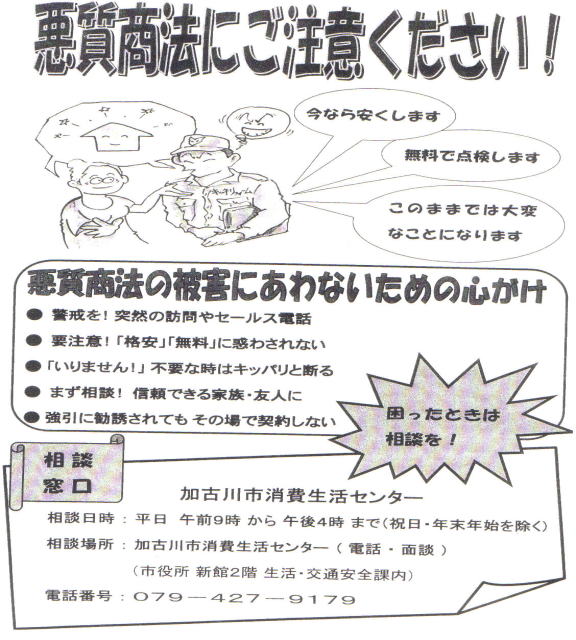 悪質商法にご注意ください!
今なら安くします
無料で点検します
このままでは大変
なことになります
悪質商法の被害にあわないための心がけ
● 警戒を! 突然の訪問やセールス電話
● 要注意! 「格安」「無料」に惑わされない
● 「いりません!」 不要な時はキッパリと断る
● まず相談! 信頼できる家族・友人に
● 強引に勧誘されても その場で契約しない
困ったときは
相談を!
相談
窓口
加古川市消費生活センター
相談日時 : 平日 午前9時 から 午後4時 まで(祝日・年末年始を除く)
相談場所 : 加古川市消費生活センター ( 電話 ・ 面談 )
(市役所 新館2階 生活・交通安全課内)
電話番号 : 079-427-9179